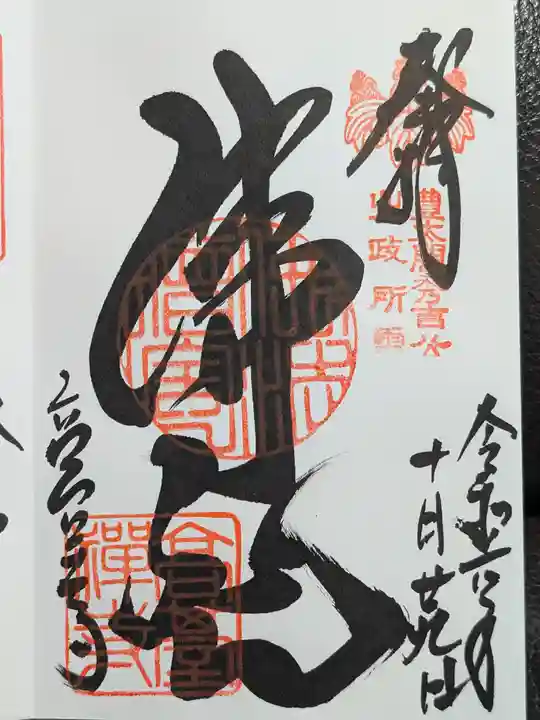 奉拝
豐太閤秀吉公
政所
令和六年
十月廿九日
佛心
高台寺
高臺
禪寺